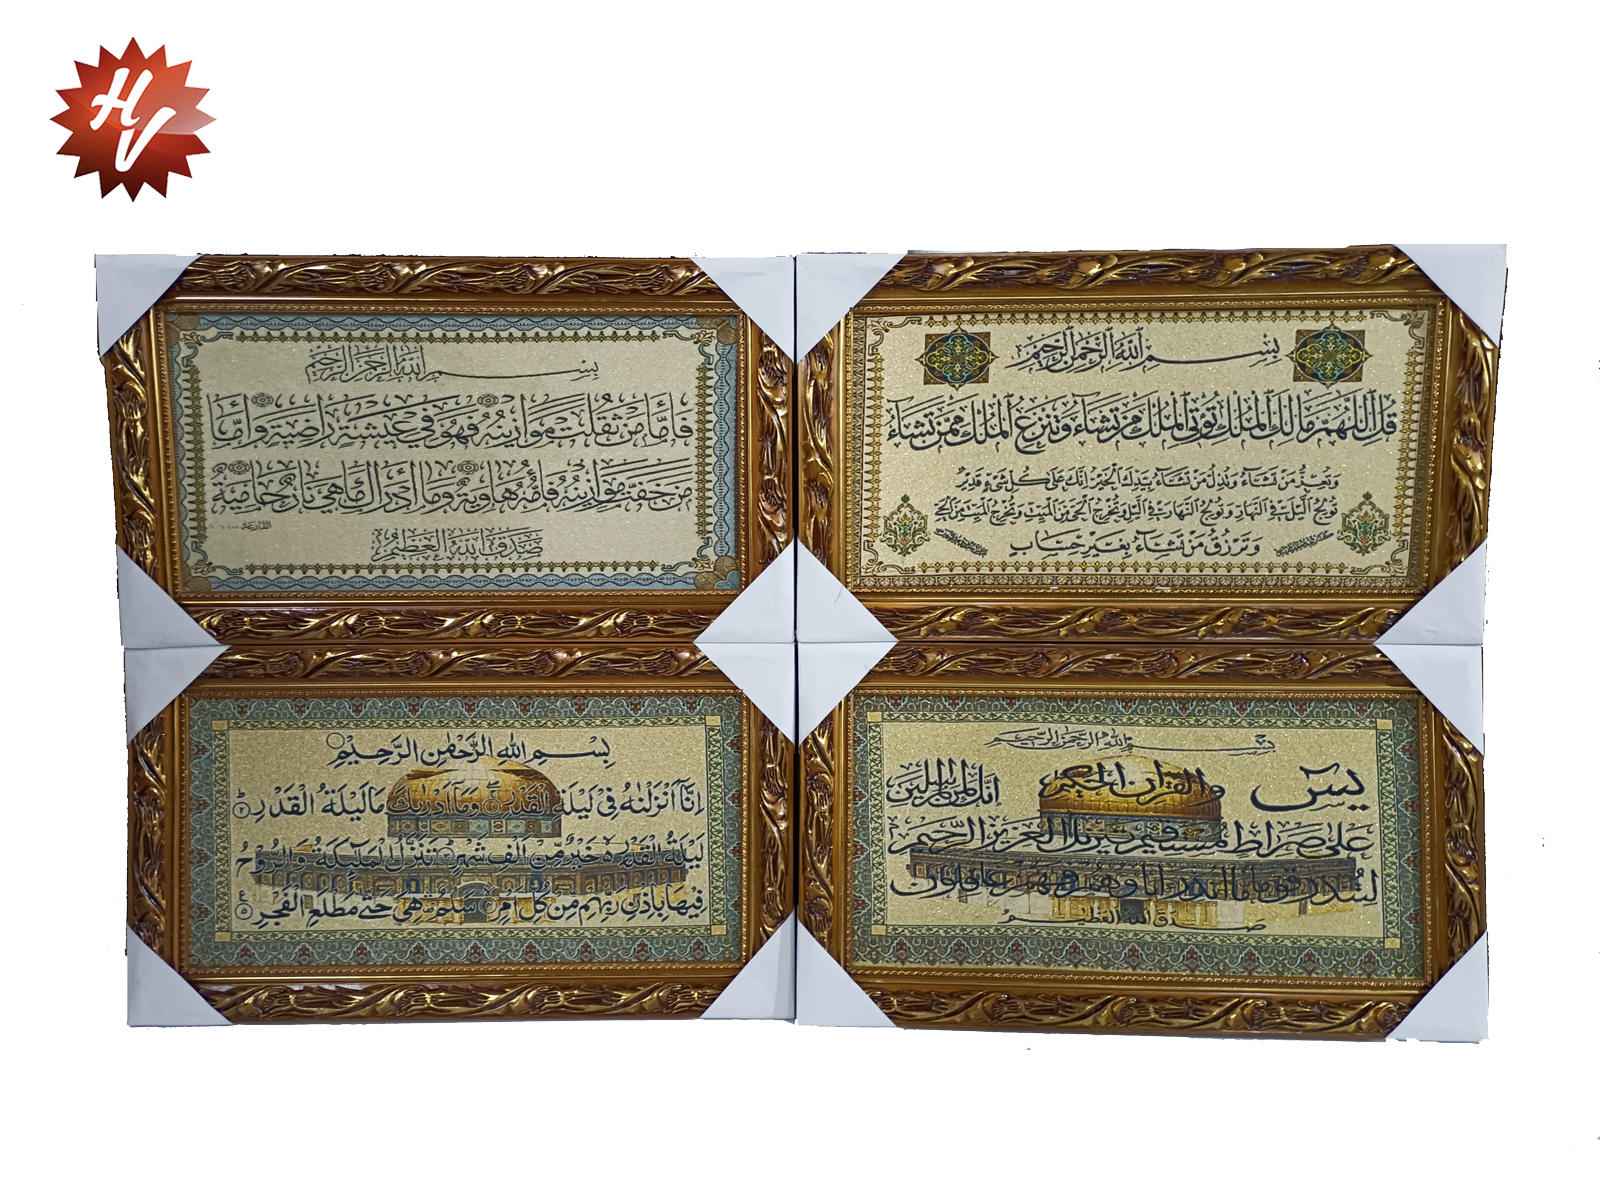 HV
بسم الله الرحمن الرحيم
فأما من ثقلت موازينه فهو في عيشة راضية وأما
من خفت موازينه فأمه هاوية وما أدراك ماهي نار حامية
القارعة
صدق الله العظيم
بسم الله الرحمن الرحيم
قل اللهم مالك الملك تؤتي الملك من تشاء وتنزع الملك ممن تشاء
وتعز من تشاء وتذل من تشاء بيدك الخير إنك على كل شيء قدير
تولج الليل في النهار وتولج النهار في الليل وتخرج الحي من الميت وتخرج الميت من الحي
وترزق من تشاء بغير حساب
بسم الله الرحمن الرحيم
انا انزلناه في ليلة القدر وما أدريك ما ليلة القدر
ليلة القدر خير من الف شهر تنزل الملايكة والروح
فيها باذن ربهم من كل امر سلام هي حتى مطلع الفجر
بسم الله الرحمن الرحيم
يس والقرآن الحكيم انك لمن المرسلين
على صراط مستقيم تنزيل العزيز الرحيم
لتنذر قوما ما انذر اباؤهم فهم غافلون
صدق الله العظيم